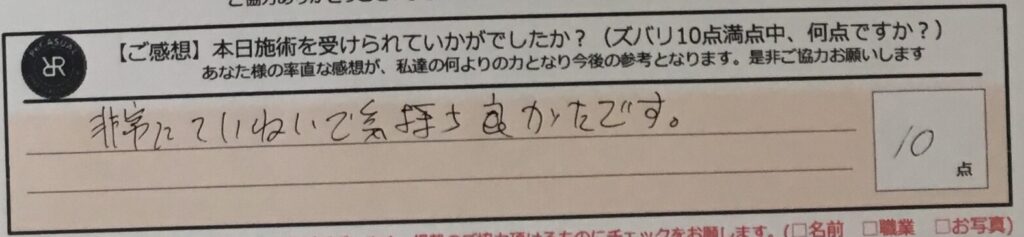 【ご感想】本日施術を受けられていかがでしたか？（ズバリ10点満点中、何点ですか？）
あなた様の率直な感想が、私達の何よりの力となり今後の参考となります。是非ご協力お願いします
非常にていねいで気持ち良かたです。
10
点
にチェックをお願します。(□名前 □職業 □お写真)